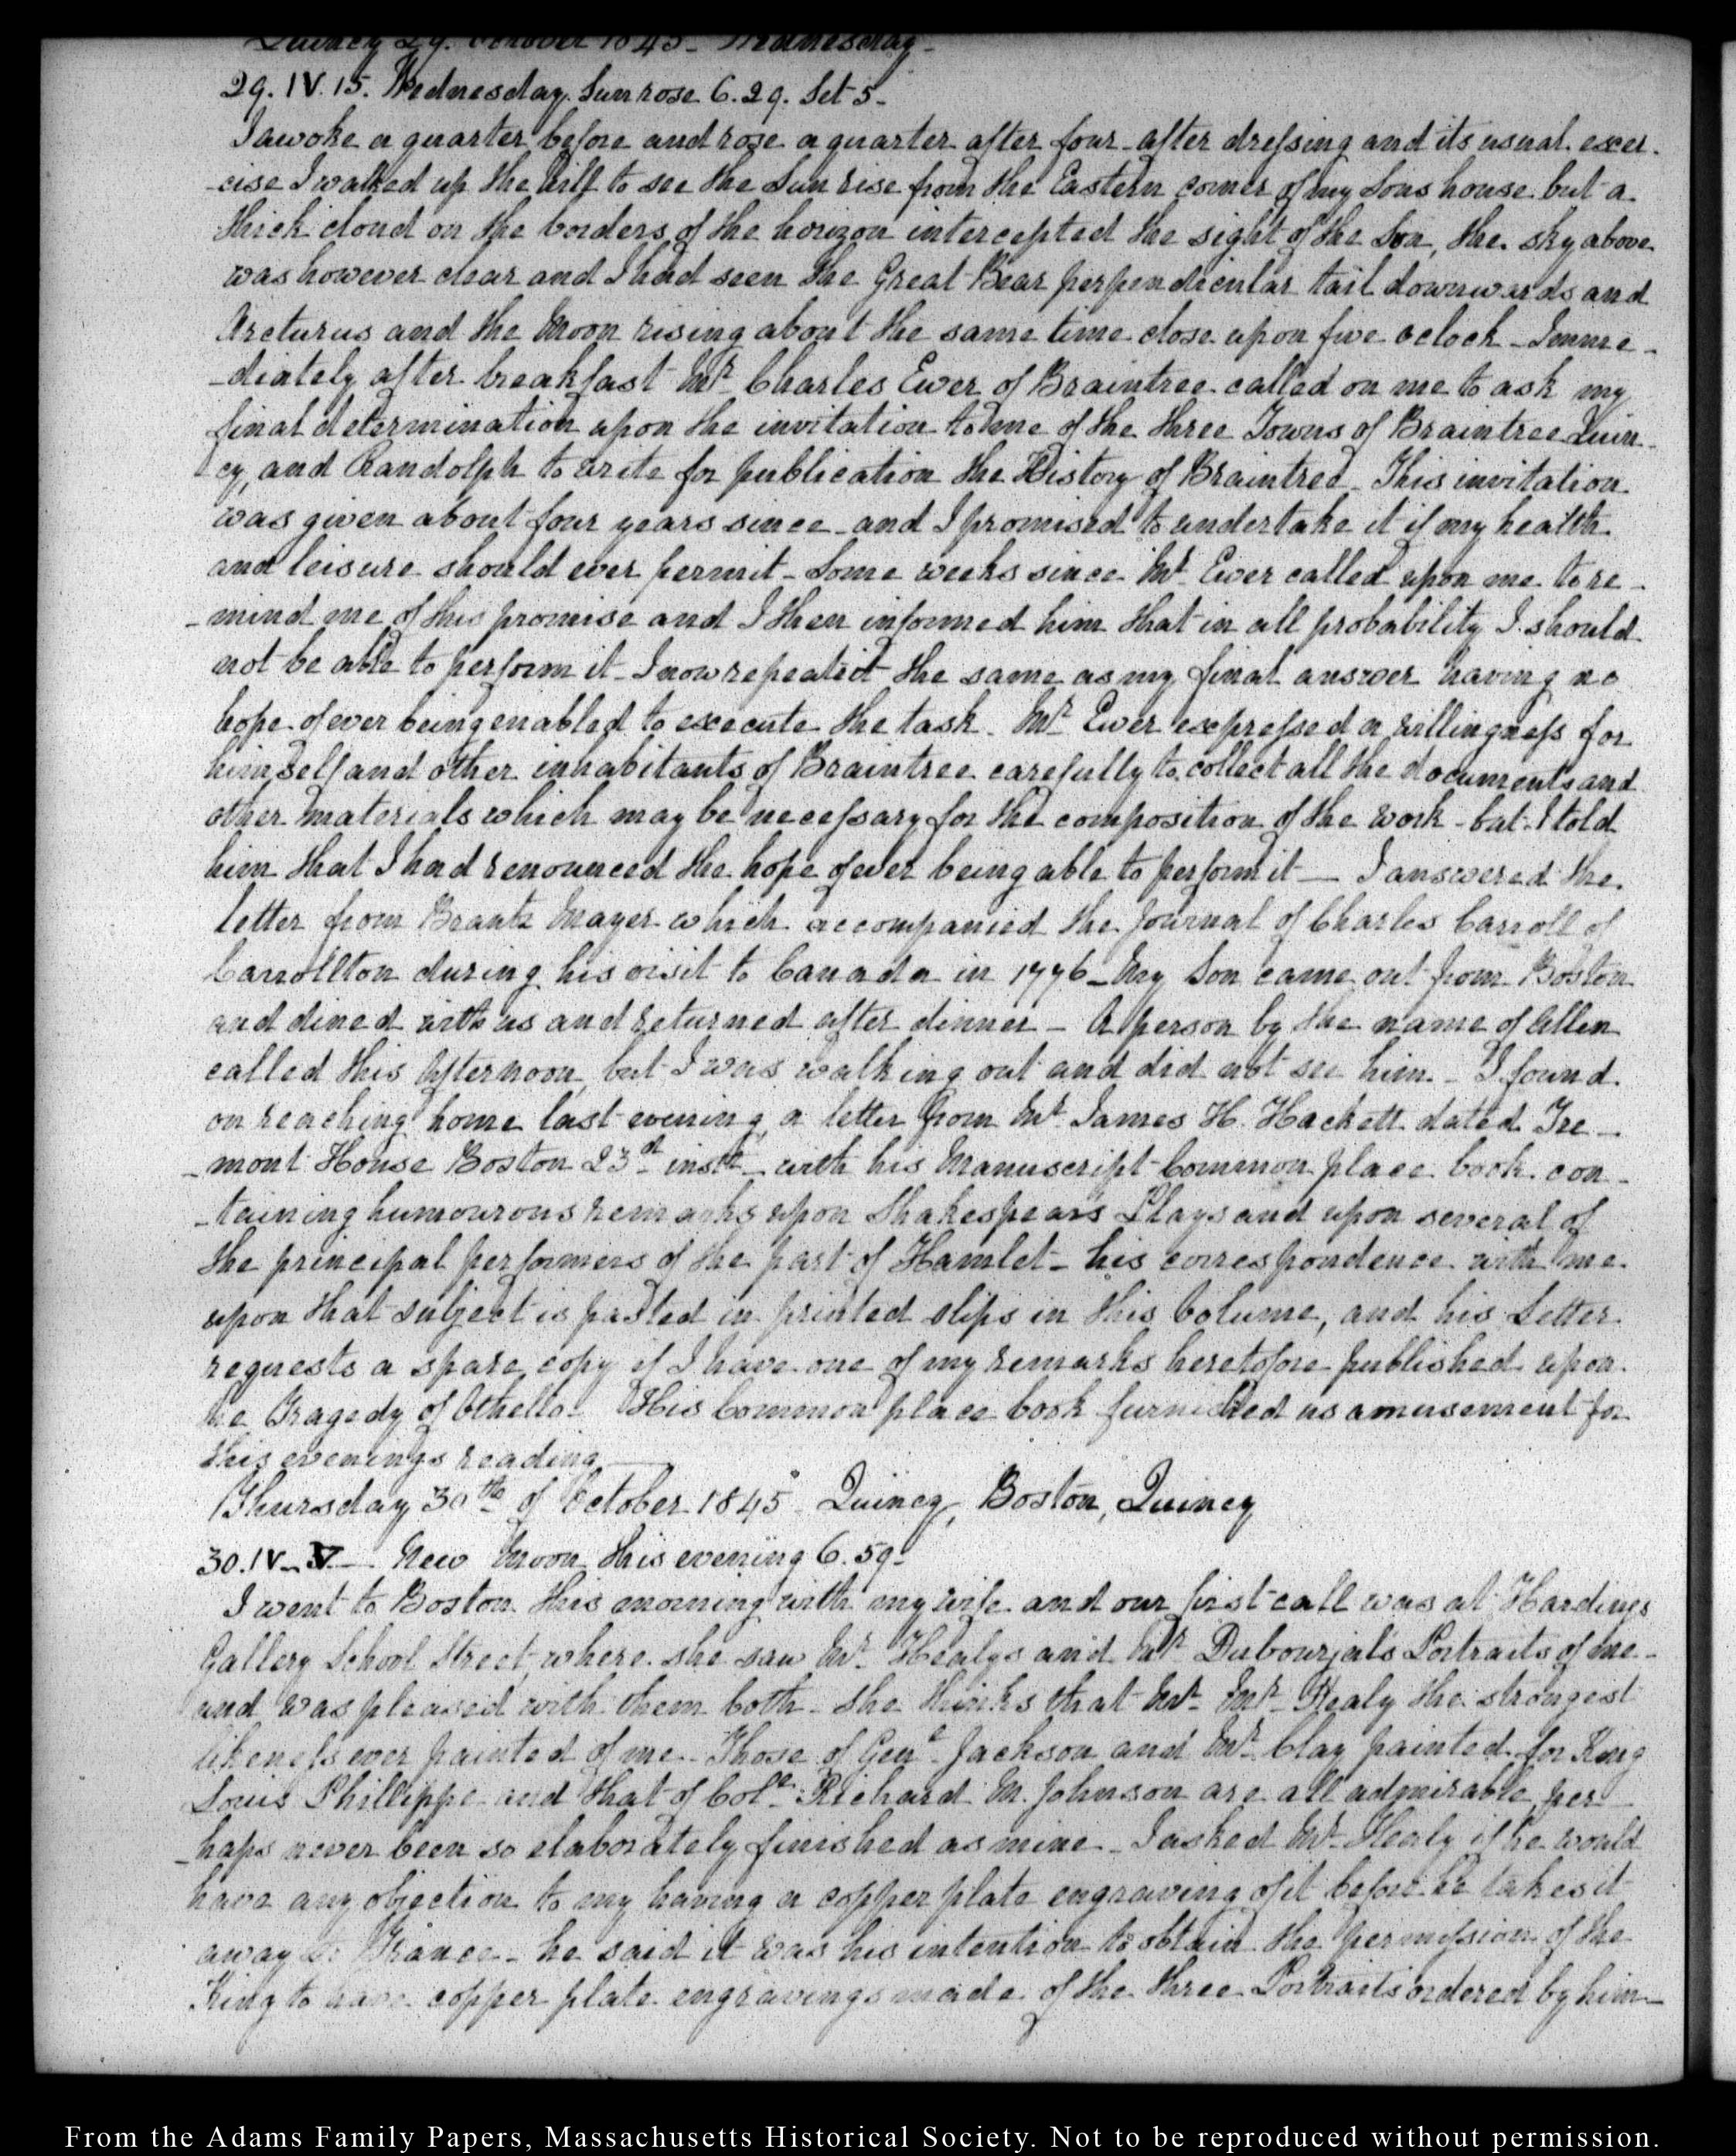 Quincy 29. October 1845 - Wednesday -
29. IV. 15. Wednesday. Sun rose 6.29. Set 5 -
I awoke a quarter before and rose a quarter after four - after dressing and its usual exer -
- cise I walked up the hill to see the Sun rise from the Eastern corner of my Sons house but a
thick cloud on the borders of the horizon intercepted the sight of the Son, the sky above
was however clear and I had seen the Great Bear perpendicular tail downwards and
Arcturus and the Moon rising about the same time close upon five oclock - Imme -
- diately after breakfast Mr. Charles Ewer of Braintree called on me to ask my
final determination upon the invitation to me of the three Towns of Braintree Quin -
cy, and Randolph to write for publication the History of Braintree - This invitation
was given about four years since - and I promised to undertake it if my health
and leisure should ever permit - Some weeks since Mr. Ewer called upon me to re -
- mind me of this promise and I then informed him that in all probability I should
not be able to perform it - I now repeated the same as my final answer having no
hope of ever being enabled to execute the task - Mr. Ewer expressed a willingness for
himself and other inhabitants of Braintree carefully to collect all the documents and
other materials which may be necessary for the composition of the work - but I told
him that I had renounced the hope of ever being able to perform it — I answered the
letter from Brantz Mayer which accompanied the Journal of Charles Carroll of
Carrollton during his visit to Canada in 1776 - My Son came out from Boston
and dined with us and returned after dinner - A person by the name of Allen
called this Afternoon, but I was walking out and did not see him - I found
on reaching home last evening, a letter from Mr. James H. Hackett dated Tre -
- mont House Boston 23d instt - with his Manuscript Common place book con -
- taining humourous remarks upon Shakespears Plays and upon several of
the principal performers of the part of Hamlet - his correspondence with me
upon that subject is pasted in printed slips in this Volume, and his Letter
requests a spare copy if I have one of my remarks heretofore published upon
the Tragedy of Othello - His Common place book furnished us amusement for
this evenings reading —
Thursday 30th of October 1845 - Quincy, Boston, Quincy
30. IV - V — New Moon this evening 6.59 -
I went to Boston this morning with my wife and our first call was at Hardings
Gallery School Street, where she saw Mr. Healys and Mr. Dubourjals Portraits of me -
and was pleased with them both - she thinks that Mr. Mr. Healy the strongest
likeness ever painted of me - Those of Genl. Jackson and Mr. Clay painted for King
Louis Phillippe and that of Coll. Richard M. Johnson are all admirable, per -
- haps never been so elaborately finished as mine - I asked Mr. Healy if he would
have any objection to my having a copper plate engraving of it before he takes it
away to France - he said it was his intention to obtain the permission of the
King to have copper plate engravings made of the three Portraits ordered by him -
From the Adams Family Papers, Massachusetts Historical Society. Not to be reproduced without permission.